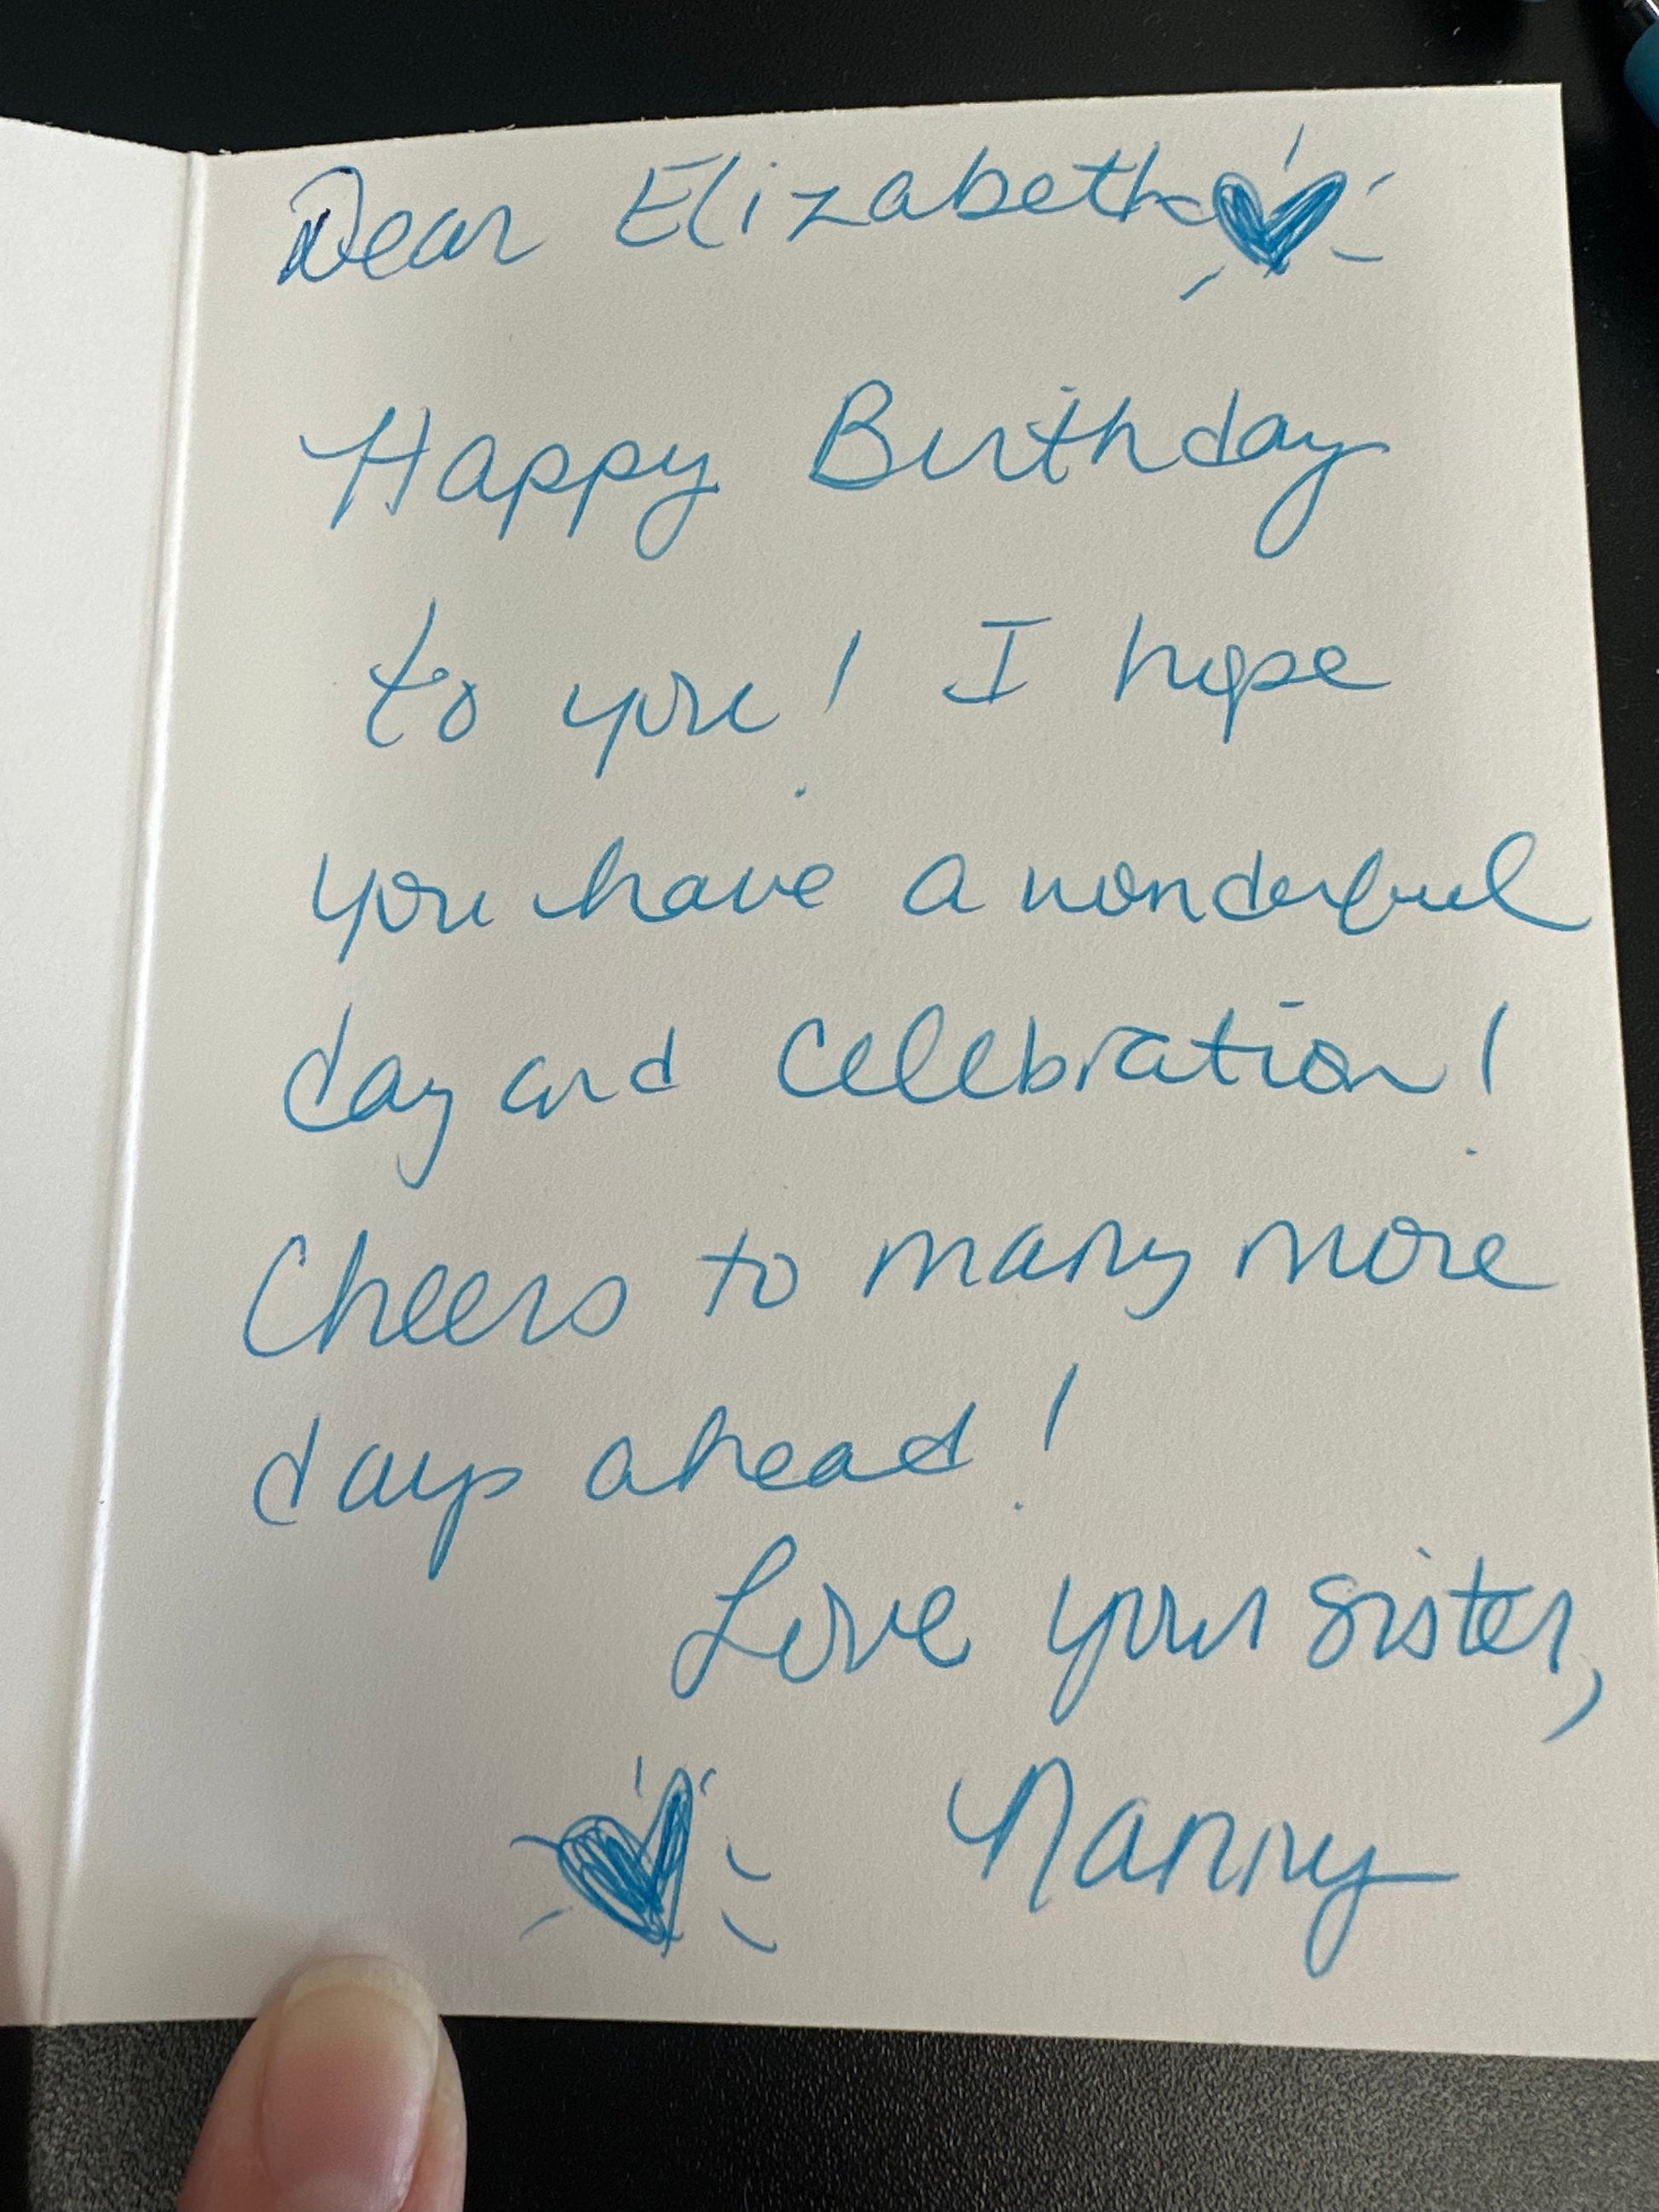 Dear Elizabeth
Happy Birthday
to you! I hope
you have a wonderful
day and celebration!
Cheers to many more
days ahead!
Love your sister,
Nanny